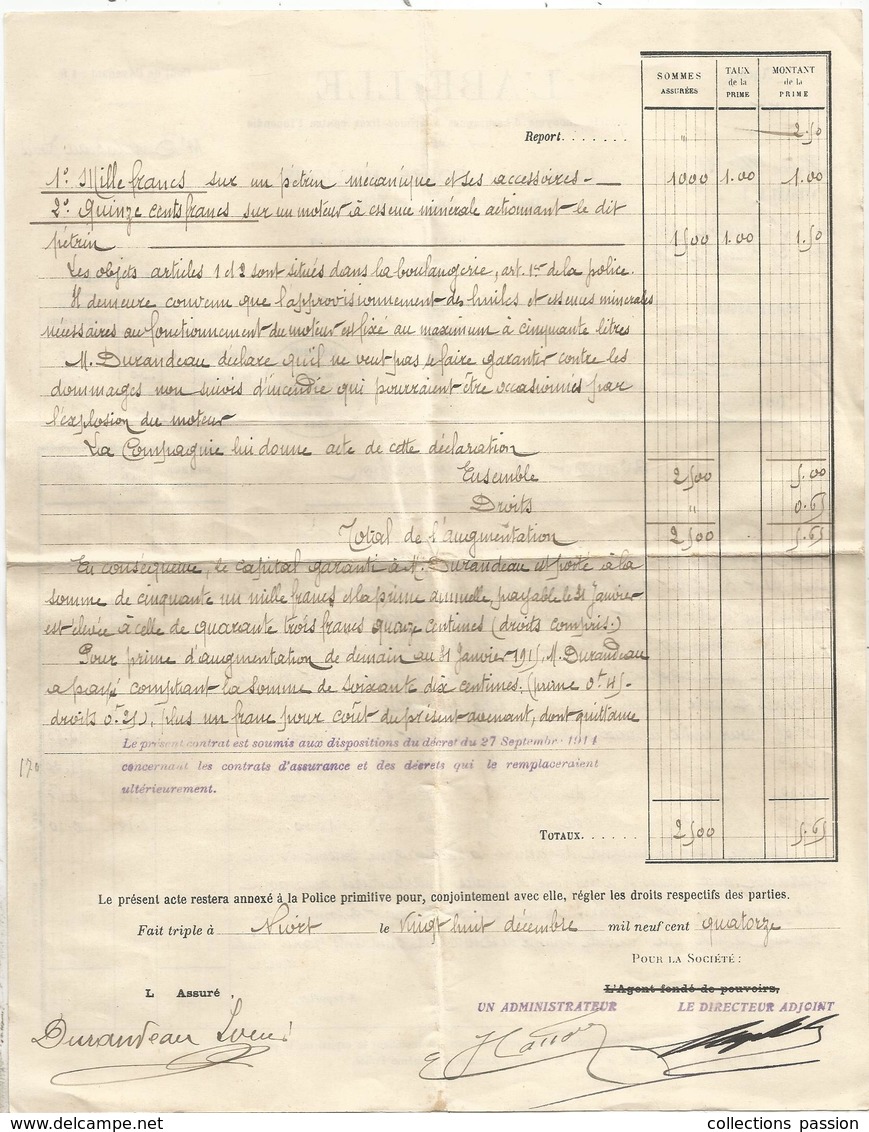 SOMMES ASSURÉES TAUX de la PRIME MONTANT de la PRIME
Report....... " 2.50
1° Mille francs sur un pétrin mécanique et ses accessoires 1000 1.00 1.00
2° Quinze cents francs sur un moteur à essence minérale actionnant le dit
pétrin 1500 1.00 1.50
Les objets articles 1 et 2 sont situés dans la boulangerie, art. 1er de la police.
Il demeure convenu que l'approvisionnement des huiles et essences minérales
nécessaires au fonctionnement du moteur est fixé au maximum à cinquante litres
M. Durandeau déclare qu'il ne veut pas se faire garantir contre les
dommages non suivis d'incendie qui pourraient être occasionnés par
l'explosion du moteur
La Compagnie lui donne acte de cette déclaration
Ensemble 2500 5.00
Droits " 0.65
Total de l'augmentation 2500 5.65
En conséquence, le capital garanti à M. Durandeau est porté à la
somme de cinquante un mille francs et la prime annuelle, payable le 31 Janvier
est élevée à celle de quarante trois francs quinze centimes (droits compris.)
Pour prime d'augmentation de demain au 31 Janvier 1915, M. Durandeau
a payé comptant la somme de soixante dix centimes, (prime 0f 45
droits 0f 25), plus un franc pour coût du présent avenant, dont quittance
Le présent contrat est soumis aux dispositions du décret du 27 Septembre 1914
concernant les contrats d'assurance et des décrets qui le remplaceraient
ultérieurement.
170
TOTAUX...... 2500 5.65
Le présent acte restera annexé à la Police primitive pour, conjointement avec elle, régler les droits respectifs des parties.
Fait triple à Niort le vingt huit décembre mil neuf cent quatorze
POUR LA SOCIÉTÉ :
L'Agent fondé de pouvoirs,
L Assuré,
UN ADMINISTRATEUR LE DIRECTEUR ADJOINT
Durandeau Louis
collections passion